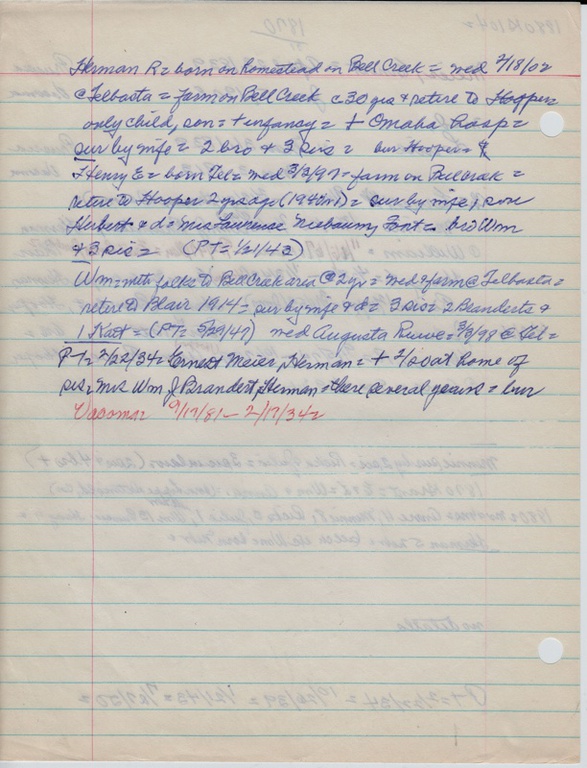 Herman R = born on homestead on Bell Creek = wed 2/18/02
@ Telbasta = farm on Bell Creek c 30 yrs & retire to Hooper
only child, son = + infancy = + Omaha hosp =
sur by wife = 2 bro & 3 sis = bur Hooper =
Henry E = born Tel = wed 3/3/97 = farm on Bell Creek =
retire to Hooper 2 yrs ago (1940 or 1) = sur by wife, son
Herbert & d = Mrs Lawrence Niebaum, Font = bro Wm
& 3 sis = (PT = 1/21/43)
Wm = with folks to Bell Creek area @ 2 yr = wed & farm @ Telbasta =
retire to Blair 1914 = sur by wife & d = 3 sis = 2 Branderts &
1 Kast = (PT = 5/29/47) wed Augusta = 3/3/98 @ Tel =
PT = 2/22/34 = Ernest Meier, Herman = + 2/20 at home of
sis = Mrs Wm J Brandert, Herman = there several years = bur
Vacoma = 9/17/81 - 2/19/34 =